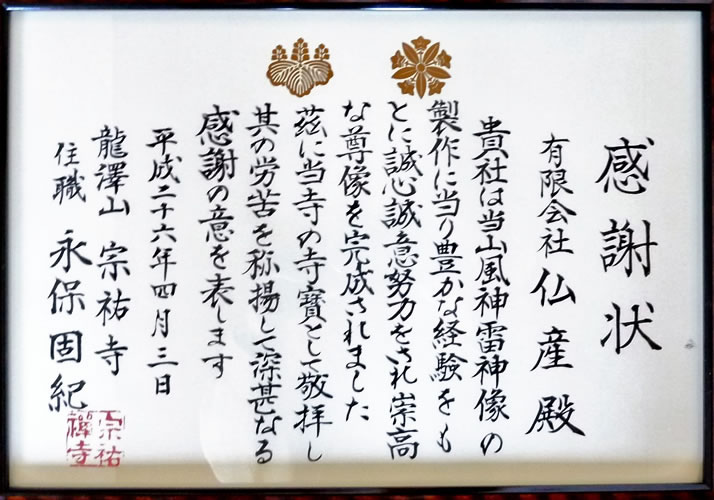 感謝状
有限会社 仏産殿
貴社は当山風神雷神像の
製作に当り豊かな経験をも
とに誠心誠意努力をされ崇高
な尊像を完成されました
茲に当寺の寺寶として敬拝し
其の労苦を称揚して深甚なる
感謝の意を表します
平成二十六年四月三日
龍澤山 宗祐寺
住職 永保固紀
宗祐
禅寺